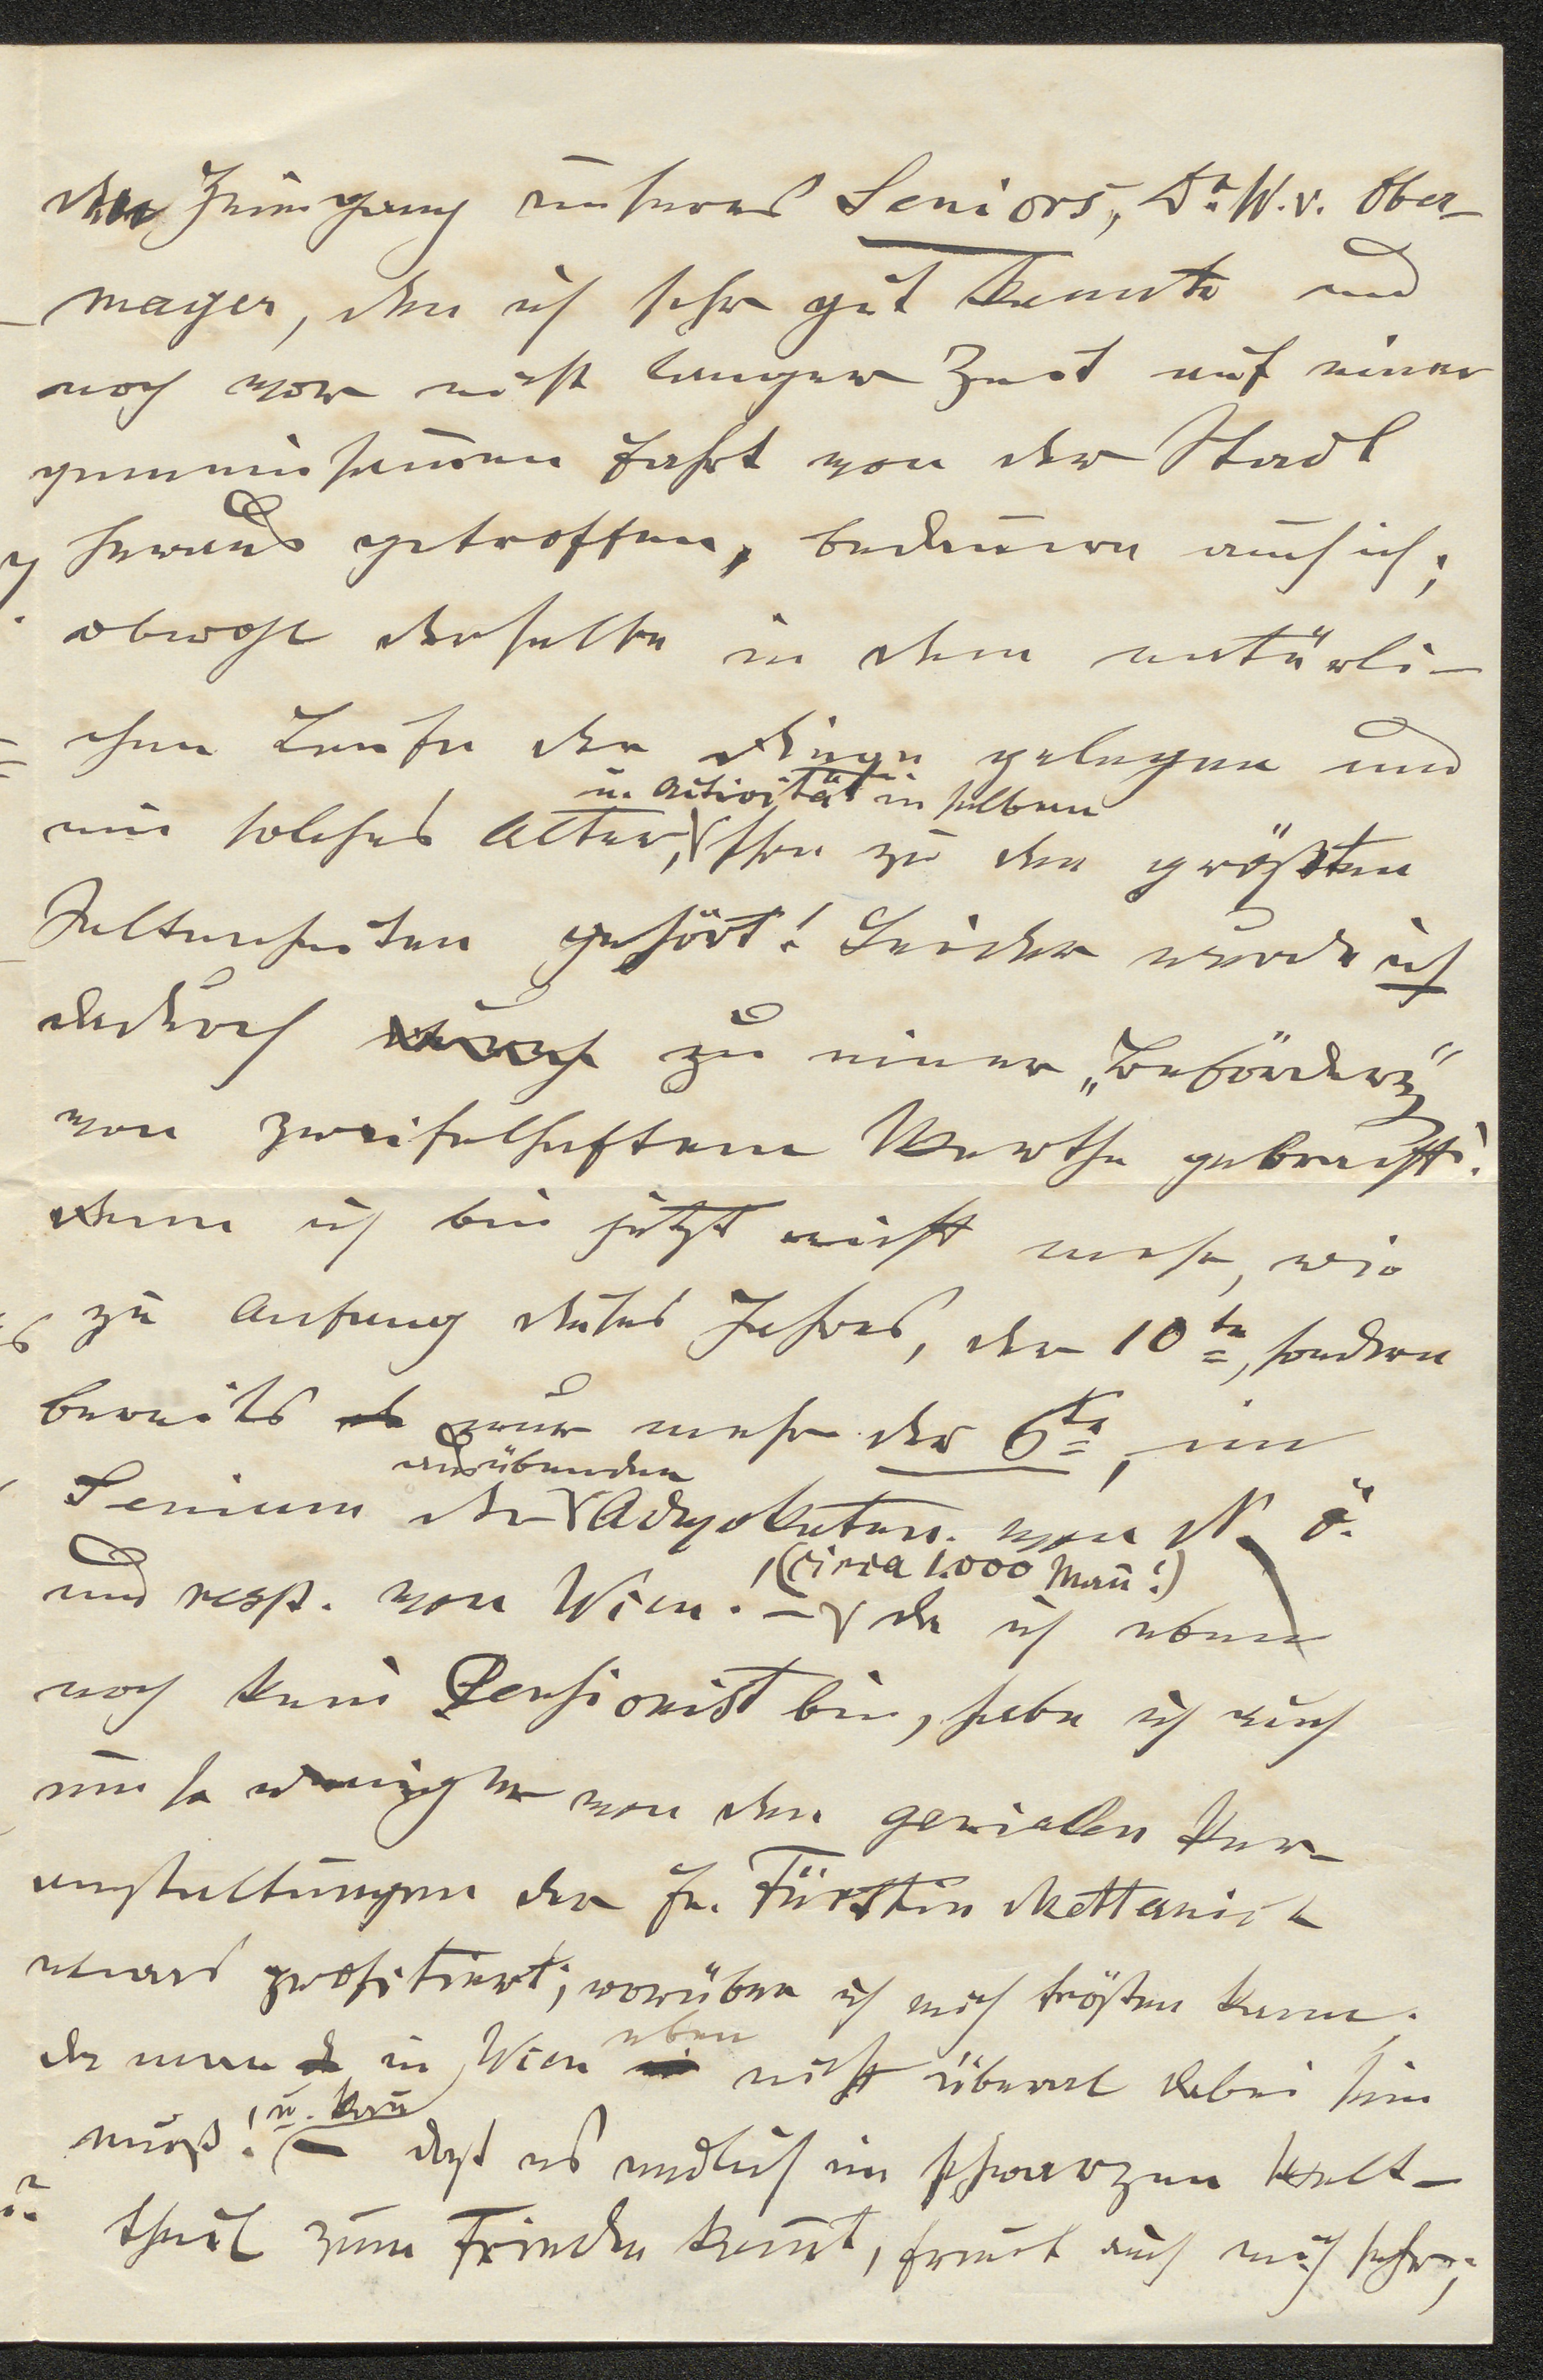 den Heimgang unseres Seniors, Dr. W. v. Ober-
mayer, den ich sehr gut kannte und
noch vor nicht langer Zeit auf einer
gemeinsamen Fahrt von der Stadt
heraus getroffen, bedauere auch ich;
obwohl derselbe in dem natürli-
chen Laufe der Dinge gelegen und
u. Activität in selbem
ein solches Alter, schon zu den größten
Seltenheiten gehört! Leider wurde ich
dadurch zu einer „Beförderg"
von zweifelhaftem Werthe gebracht!
denn ich bin jetzt nicht mehr, wie
zu Anfang dieses Jahres, der 10te, sondern
bereits nur mehr der 6te, im
ausübenden
Senium der Advokaten von N. Ö.
(circa 1.000 Mañ!)
und resp. von Wien. – da ich eben
noch kein Pensionist bin, habe ich auch
um so weniger von den genialen Ver-
anstaltungen der Fr. Fürstin Metternich
etwas profitiert; worüber ich mich trösten kann,
eben
da man in Wien nicht überal dabei sein
u. kañ
muß! – daß es endlich im schwarzen Welt-
theil zum Frieden kom̄t, freut auch mich sehr;